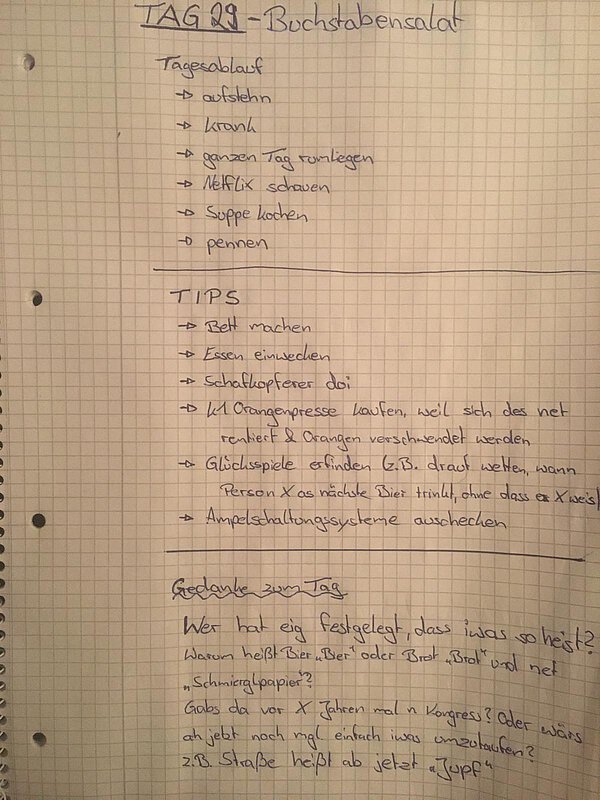 TAG 29 - Buchstabensalat
Tagesablauf
→ aufstehn
→ krank
→ ganzen Tag rumliegen
→ Netflix schauen
→ Suppe kochen
→ pennen
TIPS
→ Bett machen
→ Essen einwecken
→ Schafkopferer doi
→ k1 Orangenpresse kaufen, weil sich des net
rentiert & Orangen verschwendet werden
→ Glücksspiele erfinden (z.B. drauf wetten, wann
Person X as nächste Bier trinkt, ohne dass X weis)
→ Ampelschaltungssysteme auschecken
Gedanke zum Tag
Wer hat eig festgelegt, dass iwas so heist?
Warum heißt Bier „Bier“ oder Brot „Brot“ und net
„Schmierglpapier“?
Gabs da vor X Jahren mal n Kongress? Oder wärs
ah jetzt noch mgl. einfach iwas umzutaufen?
z.B. Straße heißt ab jetzt „Jupf“